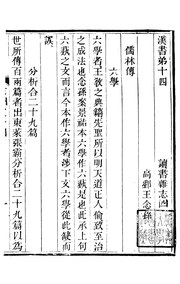 漢書弟十四
讀書雜志四
高郵王念孫
儒林傳
六學
六學者王教之典籍先聖所以明天道正人倫致至治
之成法也念孫案景祐本六學作六藝是也此承上句
六藝之文而言今本作六學者涉下文六學從此缺而
誤
分析合二十九篇
世所傳百兩篇者出東萊張霸分析合二十九篇以爲